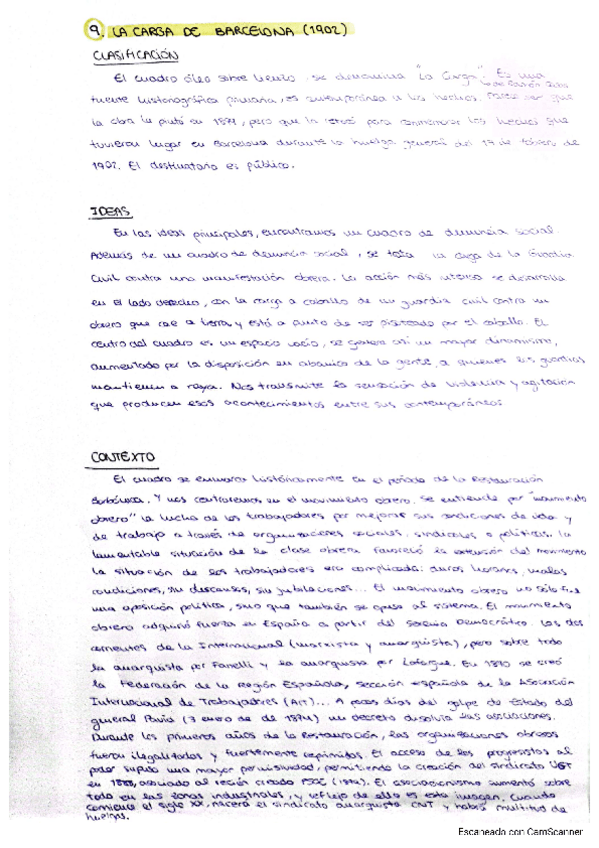 9. LA CARGA DE BARCELONA (1902)
CLASIFICACIÓN
El cuadro óleo sobre lienzo se denomina "La Carga". Es una
de Ramón Casas
fuente historiográfica primaria, es contemporánea a los hechos. que
la obra la pintó en 1899, pero que la para conmemorar los hechos que
tuvieron lugar en Barcelona durante la huelga general del 17 de febrero de
1902. El destinatario es público.
IDEAS
En las ideas principales, encontramos un cuadro de denuncia social.
Además de un cuadro de denuncia social, se trata la carga de la Guardia
Civil contra una manifestación obrera. La acción más intensa se desarrolla
en el lado derecho, con la carga a caballo de un guardia civil contra un
obrero que cae a tierra y está a punto de ser pisoteado por el caballo. El
centro del cuadro es un espacio vacío, se genera así un mayor dinamismo,
aumentado por la disposición en abanico de la gente, a quienes los guardias
mantienen a raya. Nos transmite la sensación de violencia y agitación
que producen esos acontecimientos entre sus contemporáneos.
CONTEXTO
El cuadro se enmarca históricamente en el período de la Restauración
Borbónica. Y nos centraremos en el movimiento obrero. Se entiende por "movimiento
obrero" la lucha de los trabajadores por mejorar sus condiciones de vida y
de trabajo a través de organizaciones sociales, sindicales o políticas. La
lamentable situación de la clase obrera favoreció la extensión del movimiento
la situación de los trabajadores era complicada: duros horarios, malas
condiciones, su descanso, sus jubilaciones... El movimiento obrero no sólo fue
una oposición política, sino que también se opuso al sistema. El movimiento
obrero adquirió fuerza en España a partir del Sexenio Democrático. Las dos
corrientes de la Internacional (marxista y anarquista), pero sobre todo
la anarquista por Fanelli y la anarquista por Lafargue. En 1870 se creó
la Federación de la Región Española, sección española de la Asociación
Internacional de Trabajadores (AIT)... A pocos días del golpe de Estado del
general Pavía (3 enero de de 1874) un decreto disolvía las asociaciones.
Durante los primeros años de la Restauración, las organizaciones obreras
fueron ilegalizadas y fuertemente reprimidas. El acceso de los progresistas al
poder supuso una mayor permisividad, permitiendo la creación del sindicato UGT
en 1888, asociado al recién creado PSOE (1879). El asociacionismo aumentó sobre
todo en las zonas industriales, y reflejo de ello es esta imagen. Cuando
comience el siglo XX, nacerá el sindicato anarquista CNT y habrá multitud de
huelgas.
Escaneado con CamScanner